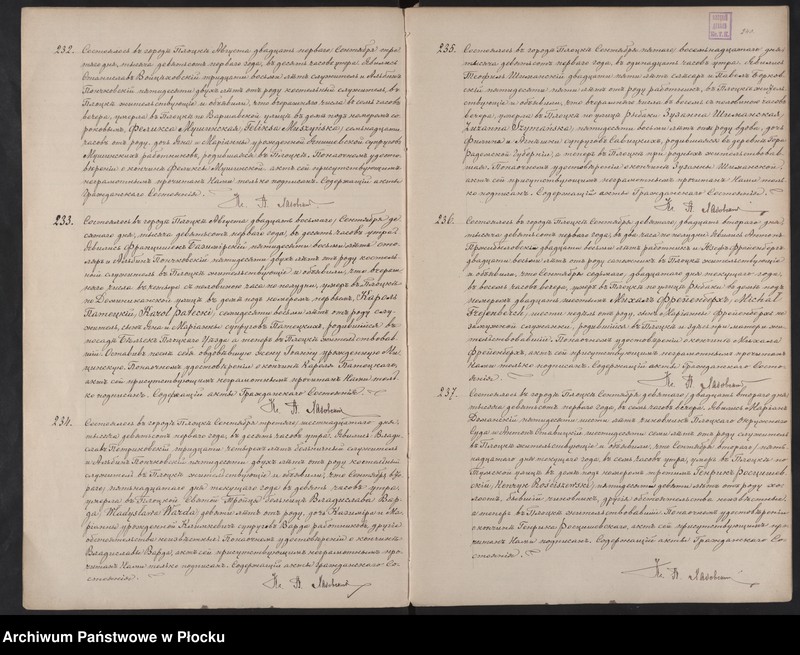 232. Состоялось въ городѣ Плоцкѣ Августа двадцать перваго, Сентября тре-
тьяго дня, тысяча девятьсотъ перваго года, въ десять часовъ утра. Явились
Станиславъ Войцѣховскій тридцати восьми лѣтъ служитель и Альбинъ
Пончковскій пятидесяти двухъ лѣтъ отъ роду костельный служитель, въ
Плоцкѣ жительствующіе и объявили, что вчерашняго числа въ семь часовъ
вечера, умерла въ Плоцкѣ по Варшавской улицѣ въ домѣ подъ номеромъ со-
роковымъ, Феликса Мушинская, Feliksa Muszyńska, семнадцати
часовъ отъ роду, дочь Яна и Маріанны урожденной супруговъ
Мушинскихъ работниковъ, родившаяся въ Плоцкѣ. По настоящемъ удосто-
вѣреніи о кончинѣ Феликсы Мушинской, актъ сей присутствующимъ
неграмотнымъ прочитанъ Нами только подписанъ. Содержащій акты
Гражданскаго Состоянія.
233. Состоялось въ городѣ Плоцкѣ Августа двадцать восьмаго, Сентября де-
сятаго дня, тысяча девятьсотъ перваго года, въ десять часовъ утра.
Явились Францишекъ пятидесяти восьми лѣтъ сто-
ляръ и Альбинъ Пончковскій, пятидесяти двухъ лѣтъ отъ роду костель-
ный служитель въ Плоцкѣ жительствующіе и объявили, что вчераш-
няго числа въ четыре съ половиною часа по полудни, умеръ въ Плоцкѣ
по Доминиканской улицѣ въ домѣ подъ номеромъ первымъ, Кароль
Патецкій, Karol Patecki, семидесяти восьми лѣтъ отъ роду слу-
житель, сынъ Яна и Маріанны супруговъ Патецкихъ, родившійся въ
посадѣ Бѣльскъ Плоцкаго Уѣзда а теперь въ Плоцкѣ жительствовав-
шій. Оставивъ послѣ себя овдовѣвшую жену Іоанну урожденную
По настоящемъ удостовѣреніи о кончинѣ Кароля Патецкаго,
актъ сей присутствующимъ неграмотнымъ прочитанъ Нами толь-
ко подписанъ. Содержащій акты Гражданскаго Состоянія.
234. Состоялось въ городѣ Плоцкѣ Сентября третьяго, шестнадцатаго дня
тысяча девятьсотъ перваго года, въ десять часовъ утра. Явились Влади-
славъ тридцати четырехъ лѣтъ больничный служитель
и Альбинъ Пончковскій пятидесяти двухъ лѣтъ отъ роду костельный
служитель въ Плоцкѣ жительствующіе и объявили, что Сентября вто-
раго, пятнадцатаго дня текущаго года въ девять часовъ утра,
умерла въ Плоцкой Святой Троицы больницѣ Владислава Вар-
да, Władysława Warda, девяти лѣтъ отъ роду, дочь Казимира и Ма-
ріанны урожденной супруговъ Варда работниковъ, другія
обстоятельства неизвѣстны. По настоящемъ удостовѣреніи о кончинѣ
Владиславы Варда, актъ сей присутствующимъ неграмотнымъ про-
читанъ Нами только подписанъ. Содержащій акты Гражданскаго Со-
стоянія.
235. Состоялось въ городѣ Плоцкѣ Сентября пятаго, восемнадцатаго дня
тысяча девятьсотъ перваго года, въ одинадцать часовъ утра. Явились
Теофиль Шиманскій двадцати пяти лѣтъ слесарь и Павелъ
пятидесяти пяти лѣтъ отъ роду работникъ, въ Плоцкѣ житель-
ствующіе и объявили, что вчерашняго числа въ восемь съ половиною часовъ
вечера, умерла въ Плоцкѣ по улицѣ Рыбаки Зузанна Шиманская,
Zuzanna Szymańska, пятидесяти восьми лѣтъ отъ роду вдова, дочь
супруговъ родившаяся въ деревнѣ
Губерніи, а теперь въ Плоцкѣ при родныхъ жительствовав-
шая. По настоящемъ удостовѣреніи о кончинѣ Зузанны Шиманской,
актъ сей присутствующимъ неграмотнымъ прочитанъ Нами толь-
ко подписанъ. Содержащій акты Гражданскаго Состоянія.
236. Состоялось въ городѣ Плоцкѣ Сентября девятаго, двадцать втораго дня
тысяча девятьсотъ перваго года, въ два часа по полудни. Явились Антонъ
двадцати восьми лѣтъ работникъ и Жофія Фрейенберхъ
двадцати восьми лѣтъ отъ роду въ Плоцкѣ жительствующіе
и объявили, что Сентября седьмаго, двадцатаго дня текущаго года,
въ восемь часовъ вечера, умеръ въ Плоцкѣ по улицѣ Рыбаки въ домѣ подъ
номеромъ двадцать шестымъ Михалъ Фрейенберхъ, Michał
Frejenberch, шести недѣль отъ роду, сынъ Маріанны Фрейенберхъ не-
замужней служанки, родившійся въ Плоцкѣ и здѣсь при матери жи-
тельствовавшій. По настоящемъ удостовѣреніи о кончинѣ Михала
Фрейенберхъ, актъ сей присутствующимъ неграмотнымъ прочитанъ
Нами только подписанъ. Содержащій акты Гражданскаго Состо-
янія.
237. Состоялось въ городѣ Плоцкѣ Сентября девятаго, двадцать втораго дня
тысяча девятьсотъ перваго года, въ семь часовъ вечера. Явились Маріанъ
Доманскій пятидесяти шести лѣтъ чиновникъ Плоцкаго Окружнаго
Суда и Антонъ шестидесяти семи лѣтъ отъ роду служитель
въ Плоцкѣ жительствующіе и объявили, что Сентября втораго, пят-
надцатаго дня текущаго года, въ семь часовъ утра, умеръ въ Плоцкѣ по
Тумской улицѣ въ домѣ подъ номеромъ третьимъ Генрикъ Росцишев-
скій, Henryk Rościszewski, пятидесяти девяти лѣтъ отъ роду хо-
лостъ, бывшій чиновникъ, другія обстоятельства неизвѣстны
а теперь въ Плоцкѣ жительствовавшій. По настоящемъ удостовѣреніи
о кончинѣ Генрика Росцишевскаго, актъ сей присутствующимъ про-
читанъ Нами подписанъ. Содержащій акты Гражданскаго Со-
стоянія.
Archiwum Państwowe w Płocku